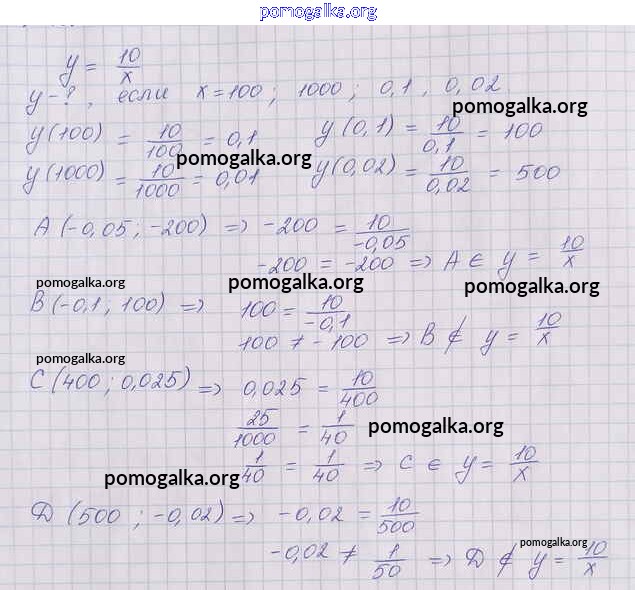 pomogalka.org
y = 10/x
y-?, если x=100; 1000; 0,1, 0,02
pomogalka.org
y(100) = 10/100 = 0,1 y(0,1) = 10/0,1 = 100
pomogalka.org
y(1000) = 10/1000 = 0,01 y(0,02) = 10/0,02 = 500
A(-0,05; -200) => -200 = 10/-0,05
-200 = -200 => A ∈ y = 10/x
pomogalka.org pomogalka.org pomogalka.org
B(-0,1, 100) => 100 = 10/-0,1
100 ≠ -100 => B ∉ y = 10/x
pomogalka.org
C(400; 0,025) => 0,025 = 10/400
25/1000 = 1/40
pomogalka.org
1/40 = 1/40 => C ∈ y = 10/x
pomogalka.org
D (500; -0,02) => -0,02 = 10/500
pomogalka.org
-0,02 ≠ 1/50 => D ∉ y = 10/x